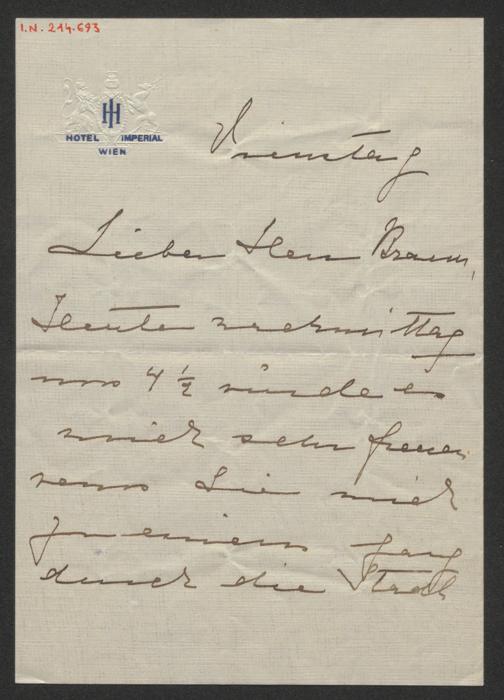 I.N. 214.693
HOTEL IMPERIAL
WIEN
Dienstag
Lieber Herr Braun,
Heute nachmittag
um 4 ½ würde es
mich sehr freuen
wenn Sie mich
zu einem gang
durch die Stadt